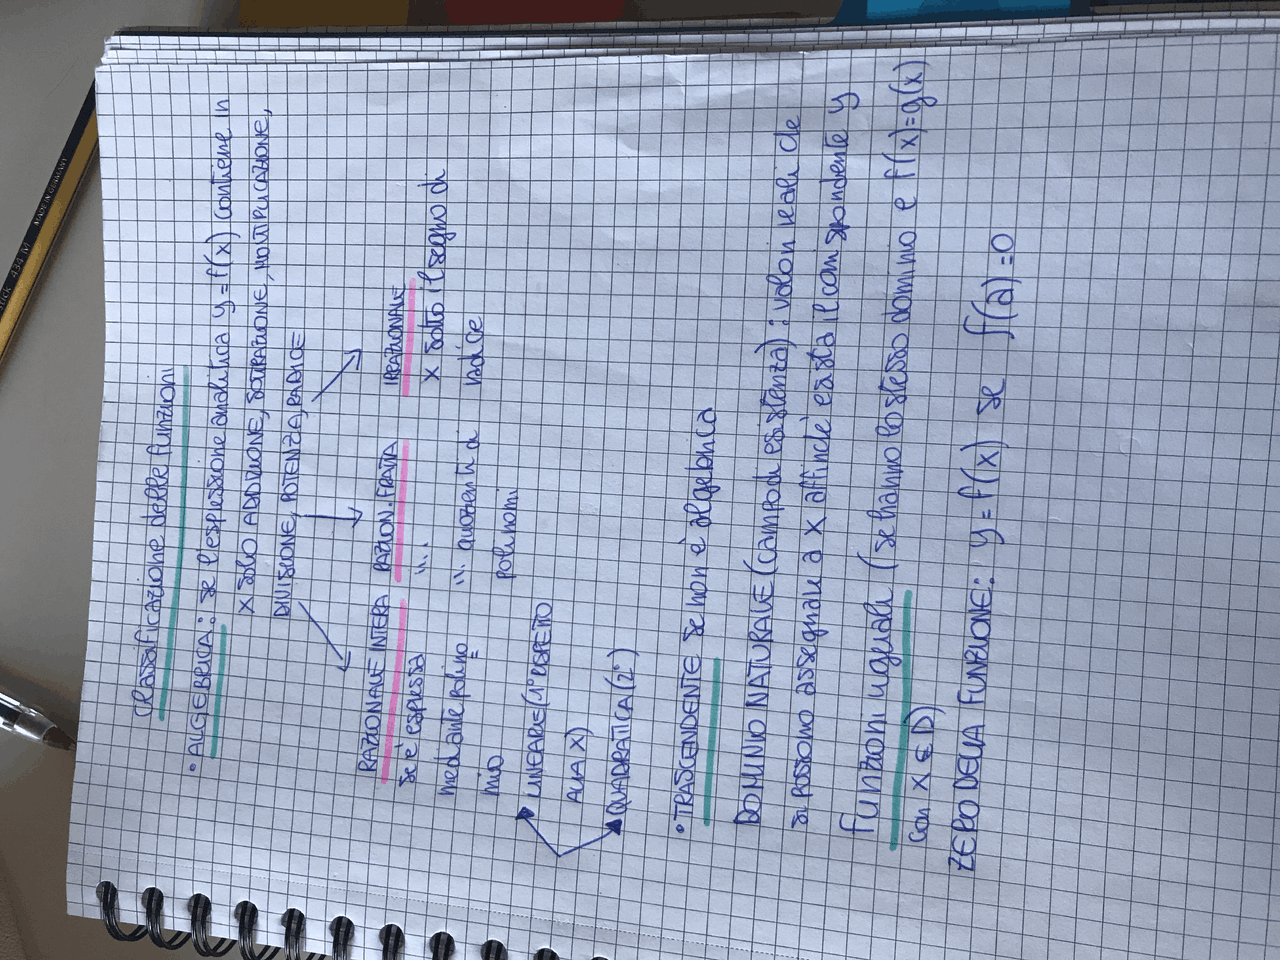 Classificazione delle funzioni
• ALGEBRICA: se l'espressione analitica y=f(x) contiene in
x solo ADDIZIONE, SOTTRAZIONE, MOLTIPLICAZIONE,
DIVISIONE, POTENZA, RADICE
RAZIONALE INTERA RAZION. FRATTA IRRAZIONALE
se è espressa "... x sotto il segno di
mediante polino= "... quozienti di radice
mio polinomi
LINEARE (1° RISPETTO
ALLA X)
QUADRATICA (2°)
• TRASCENDENTE se non è algebrica
DOMINIO NATURALE (campo di esistenza): valori reali che
si possono assegnare a x affinché esista il corrispondente y
Funzioni uguali (se hanno lo stesso dominio e f(x)=g(x)
con x ∈ D)
ZERO DELLA FUNZIONE: y=f(x) se f(a)=0
434 M
MADE IN GERMANY